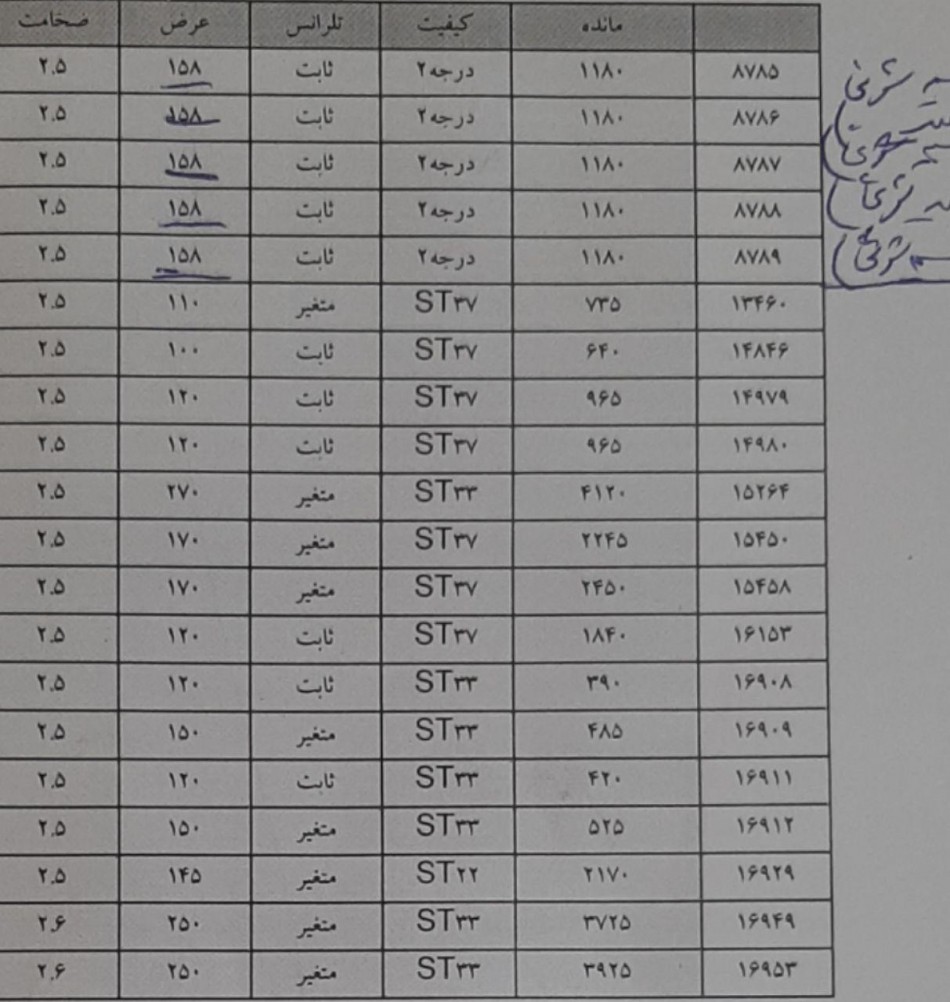 مانده کیفیت تلرانس عرض ضخامت
۸۷۸۵ ۱۱۸۰ درجه۲ ثابت ۱۵۸ ۲.۵
۸۷۸۶ ۱۱۸۰ درجه۲ ثابت ۱۵۸ ۲.۵
۸۷۸۷ ۱۱۸۰ درجه۲ ثابت ۱۵۸ ۲.۵
۸۷۸۸ ۱۱۸۰ درجه۲ ثابت ۱۵۸ ۲.۵
۸۷۸۹ ۱۱۸۰ درجه۲ ثابت ۱۵۸ ۲.۵
۱۳۴۶۰ ۷۳۵ ST۳۷ متغیر ۱۱۰ ۲.۵
۱۴۸۴۶ ۶۴۰ ST۳۷ ثابت ۱۰۰ ۲.۵
۱۴۹۷۹ ۹۶۵ ST۳۷ ثابت ۱۲۰ ۲.۵
۱۴۹۸۰ ۹۶۵ ST۳۷ ثابت ۱۲۰ ۲.۵
۱۵۲۶۴ ۴۱۲۰ ST۳۳ متغیر ۲۷۰ ۲.۵
۱۵۴۵۰ ۲۲۴۵ ST۳۷ متغیر ۱۷۰ ۲.۵
۱۵۴۵۸ ۲۴۵۰ ST۳۷ متغیر ۱۷۰ ۲.۵
۱۶۱۵۳ ۱۸۴۰ ST۳۷ ثابت ۱۲۰ ۲.۵
۱۶۹۰۸ ۳۹۰ ST۳۳ ثابت ۱۲۰ ۲.۵
۱۶۹۰۹ ۴۸۵ ST۳۳ متغیر ۱۵۰ ۲.۵
۱۶۹۱۱ ۴۲۰ ST۳۳ ثابت ۱۲۰ ۲.۵
۱۶۹۱۲ ۵۲۵ ST۳۳ متغیر ۱۵۰ ۲.۵
۱۶۹۲۹ ۲۱۷۰ ST۲۲ متغیر ۱۴۵ ۲.۵
۱۶۹۴۹ ۳۷۲۵ ST۳۳ متغیر ۲۵۰ ۲.۶
۱۶۹۵۳ ۳۹۲۵ ST۳۳ متغیر ۲۵۰ ۲.۶